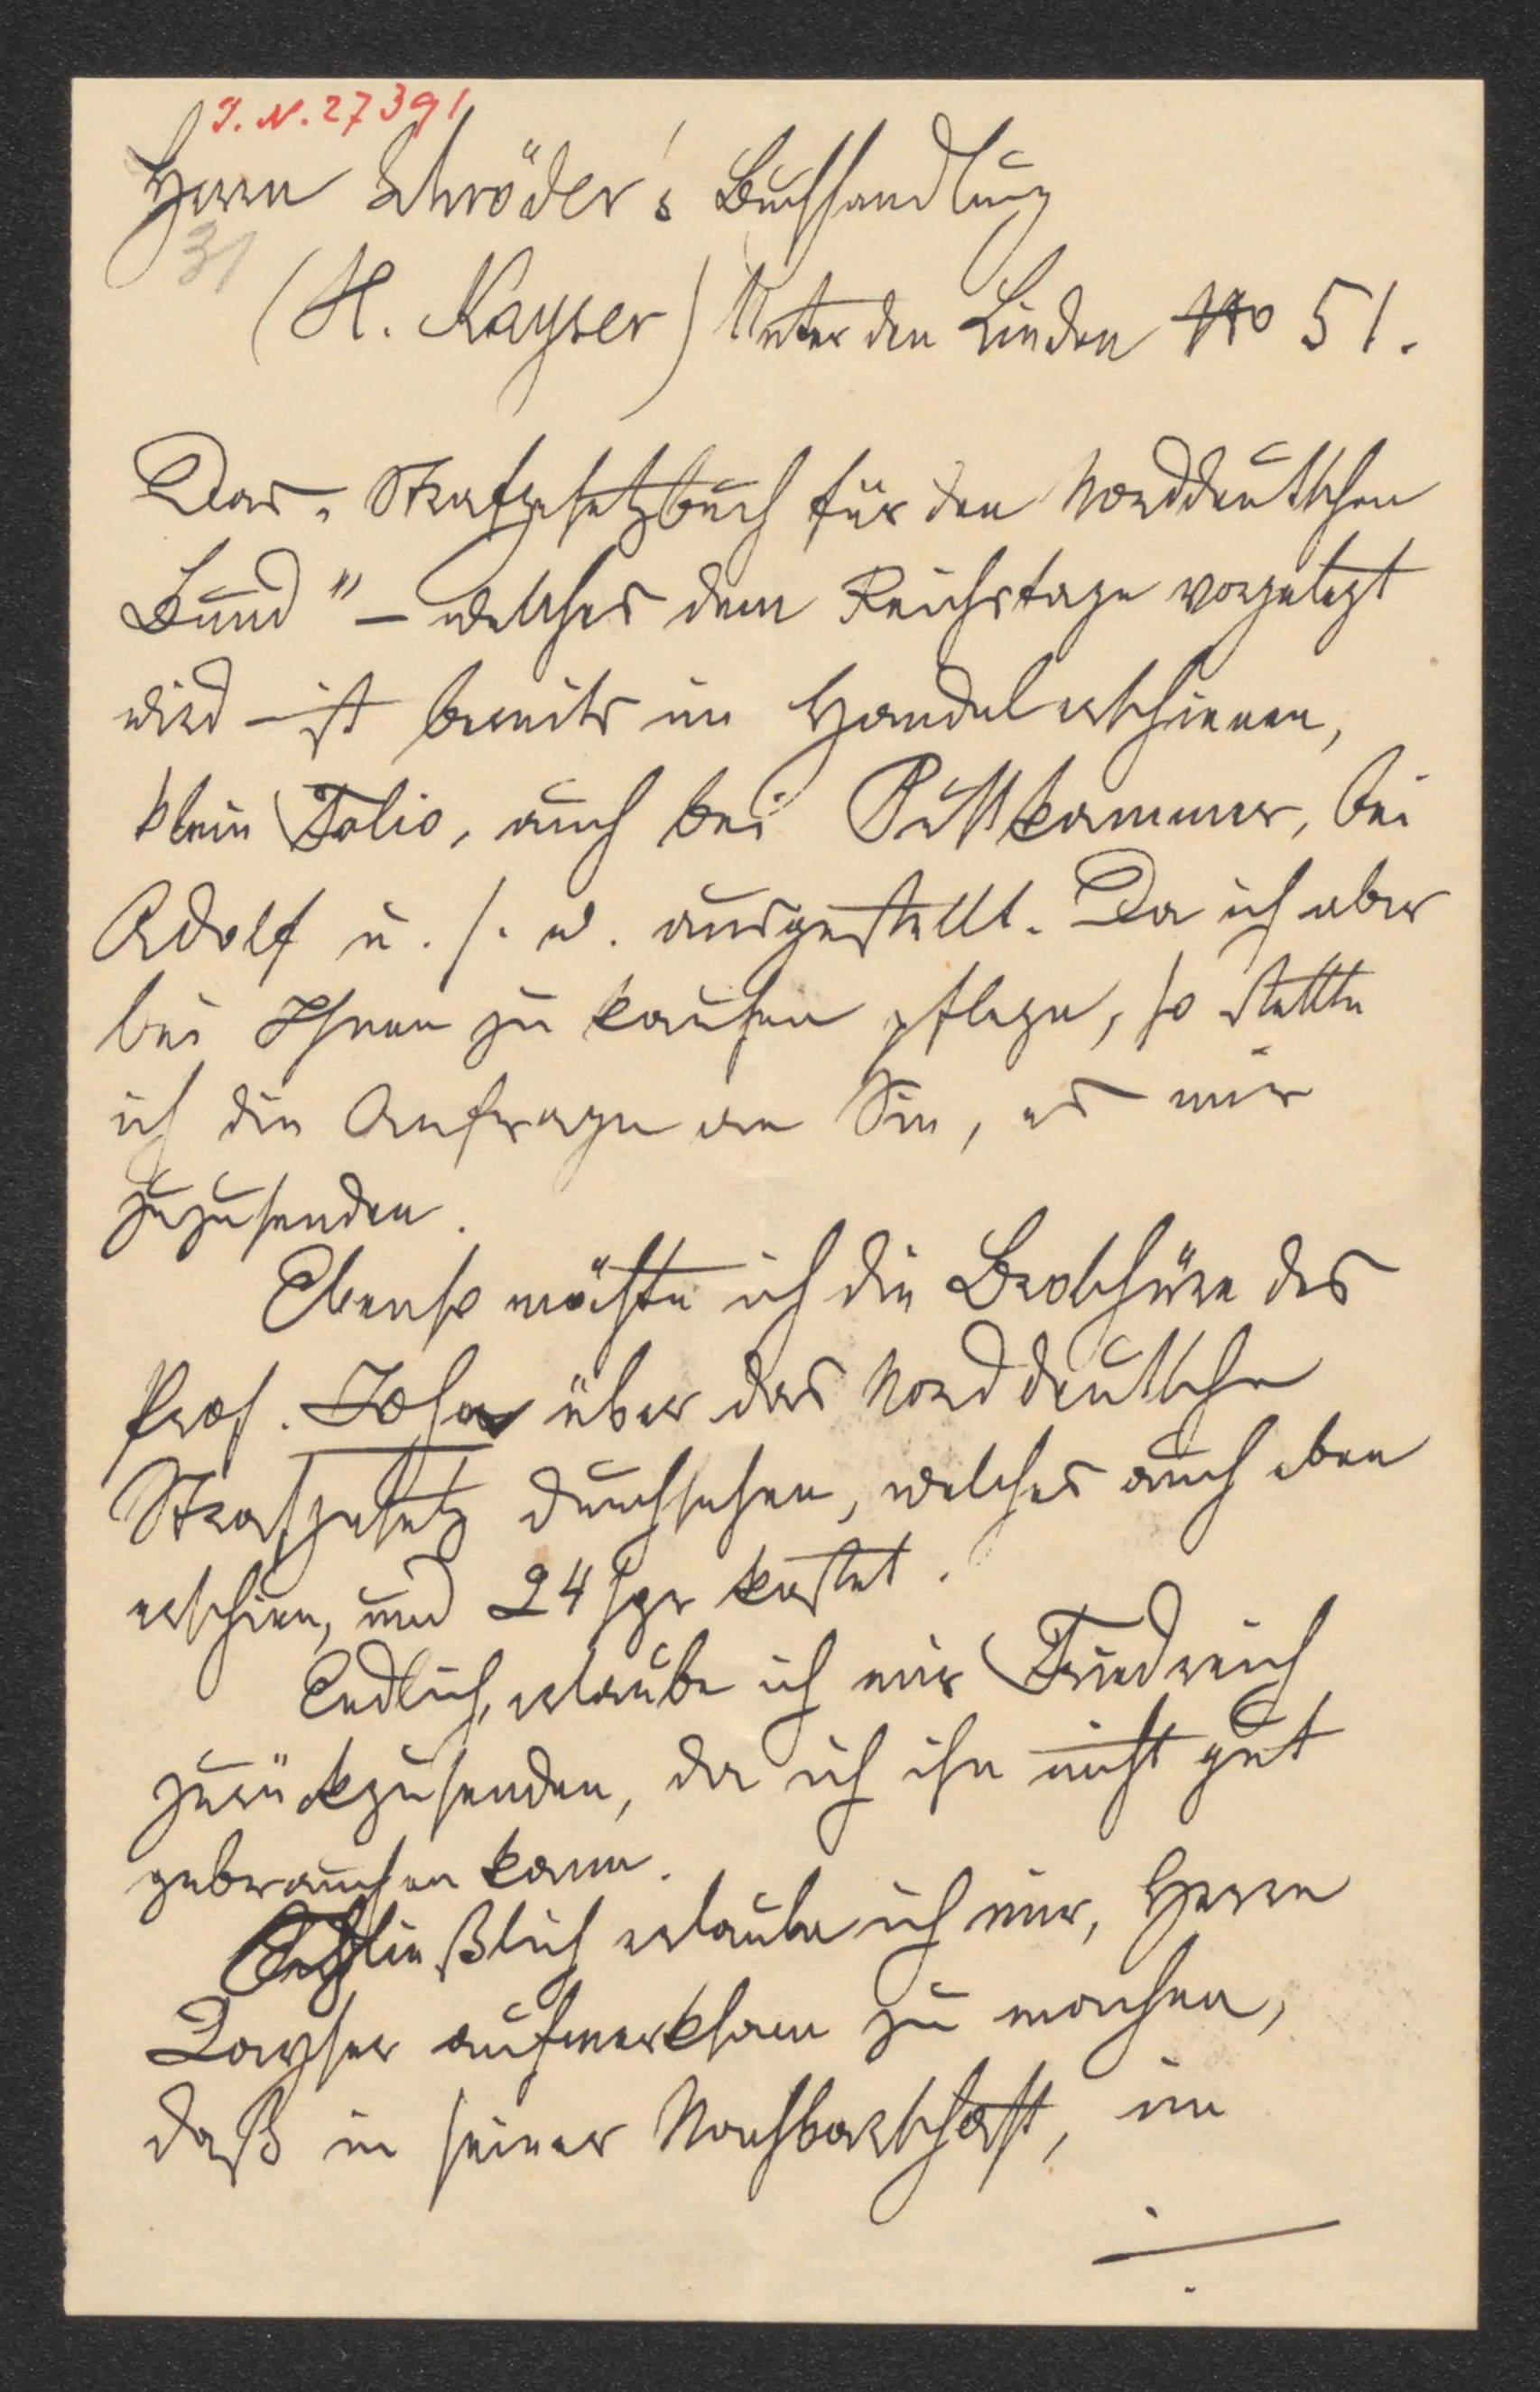 J. N. 27391
Herrn Schröder's Buchhandlung
31
(H. Kayser) Unter den Linden No 51.
Das „Strafgesetzbuch für den Norddeutschen
Bund" – welches dem Reichstage vorgelegt
wird – ist bereits im Handel erschienen,
klein Folio, auch bei Puttkammer, bei
Adolf u. s. w. ausgestellt. Da ich aber
bei Ihnen zu kaufen pflege, so stellte
ich die Anfrage an Sie, es mir
zuzusenden.
Ebenso möchte ich die Broschüre des
Prof. John über das Norddeutsche
Strafgesetz durchsehen, welches auch eben
erschien, und 24 sgr kostet.
Endlich, erlaube ich mir Friedreich
zurückzusenden, da ich ihn nicht gut
gebrauchen kann.
Schließlich erlaube ich mir, Herrn
Kayser aufmerksam zu machen,
daß in seiner Nachbarschaft, im
./.